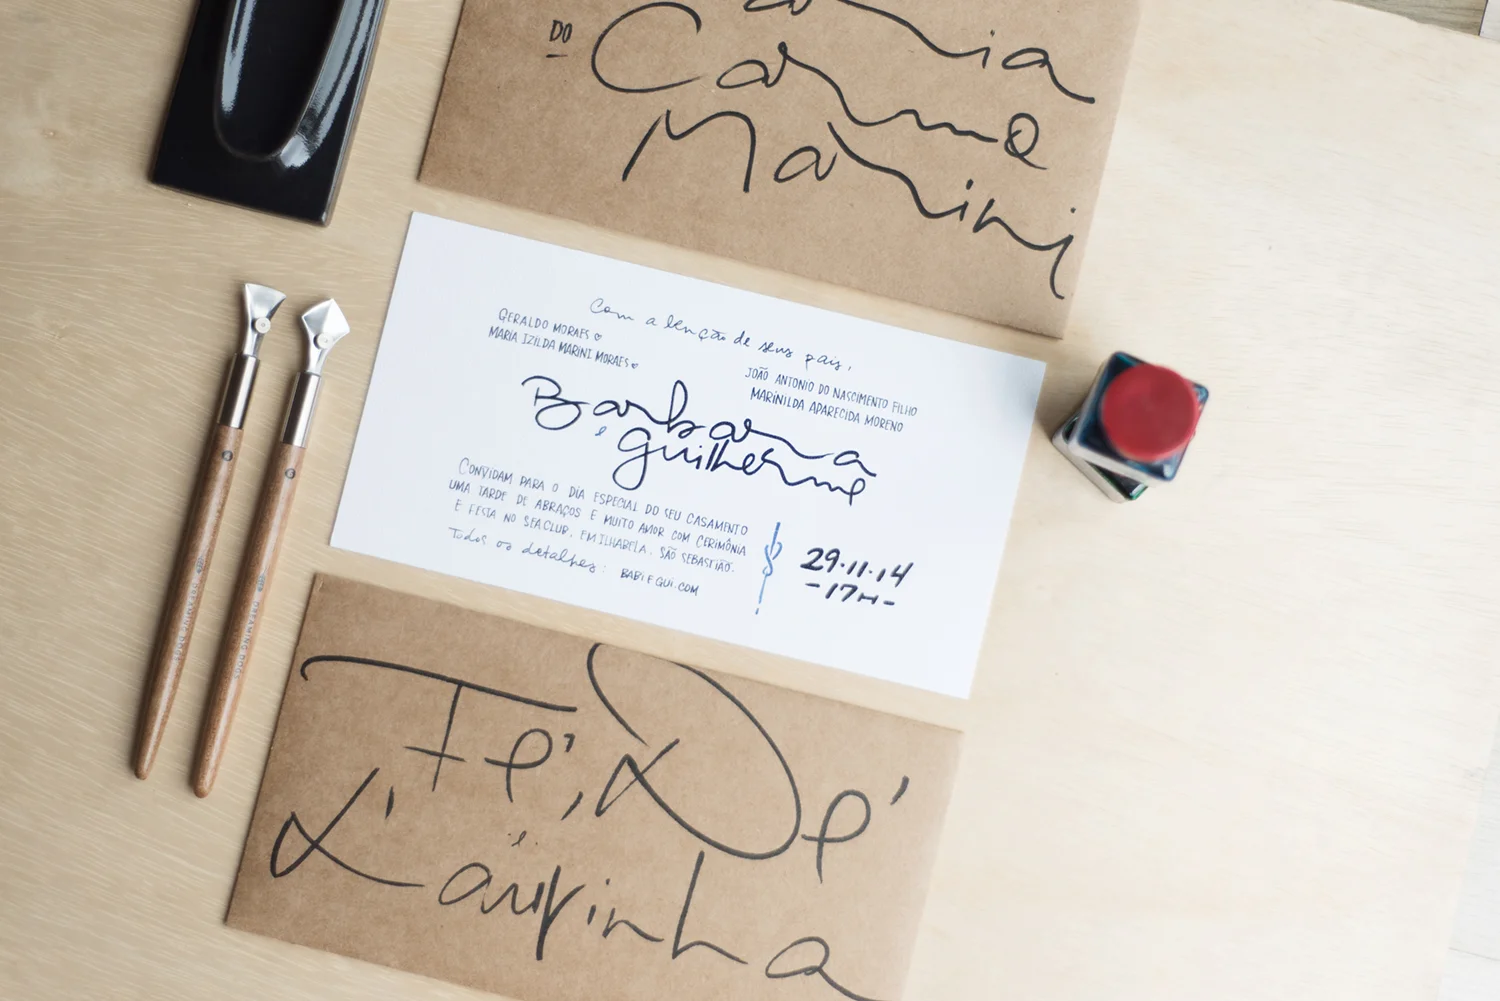 DO
Carmo
Marini
Com a benção de seus pais,
GERALDO MORAES
MARIA IZILDA MARINI MORAES
JOÃO ANTONIO DO NASCIMENTO FILHO
MARINILDA APARECIDA MORENO
Barbara
e Guilherme
CONVIDAM PARA O DIA ESPECIAL DO SEU CASAMENTO
UMA TARDE DE ABRAÇOS E MUITO AMOR COM CERIMÔNIA
E FESTA NO SEA CLUB, EM ILHABELA, SÃO SEBASTIÃO.
Todos os detalhes: BABIEGUI.COM
29.11.14
-17H-
Fé, Dé
e
Láurinha
DREAMING DOGS
DREAMING DOGS